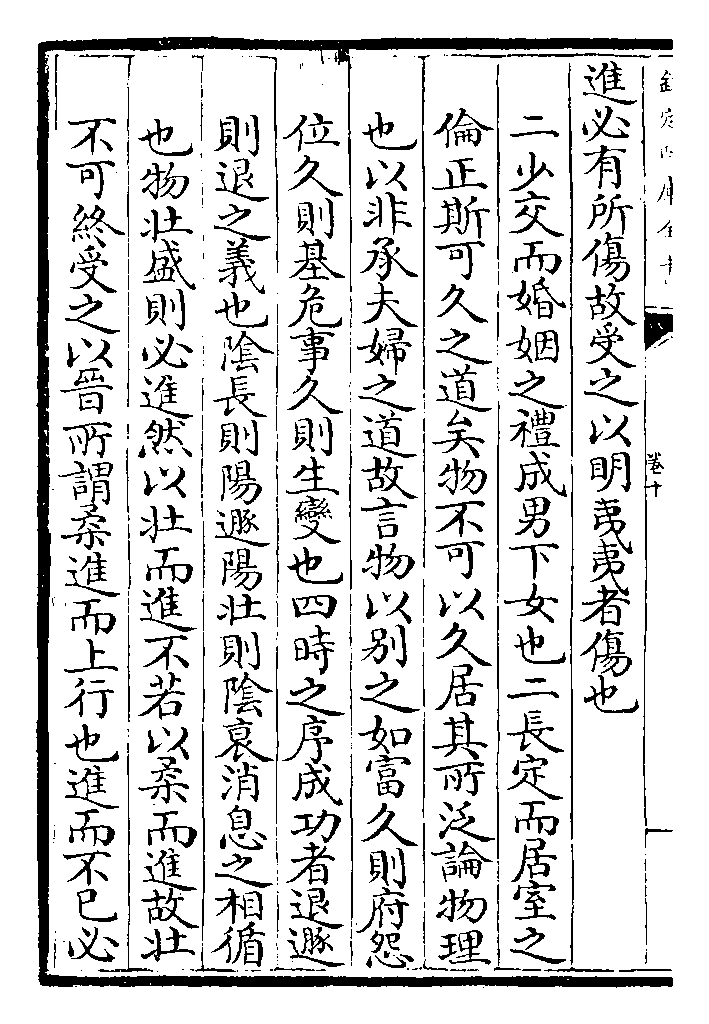 欽定四庫全書
卷十
進必有所傷故受之以明夷夷者傷也
二少交而婚姻之禮成男下女也二長定而居室之
倫正斯可久之道矣物不可以久居其所泛論物理
也以非承夫婦之道故言物以别之如富久則府怨
位久則基危事久則生變也四時之序成功者退遯
則退之義也陰長則陽遯陽壯則陰衰消息之相循
也物壯盛則必進然以壯而進不若以柔而進故壯
不可終受之以晉所謂柔進而上行也進而不已必